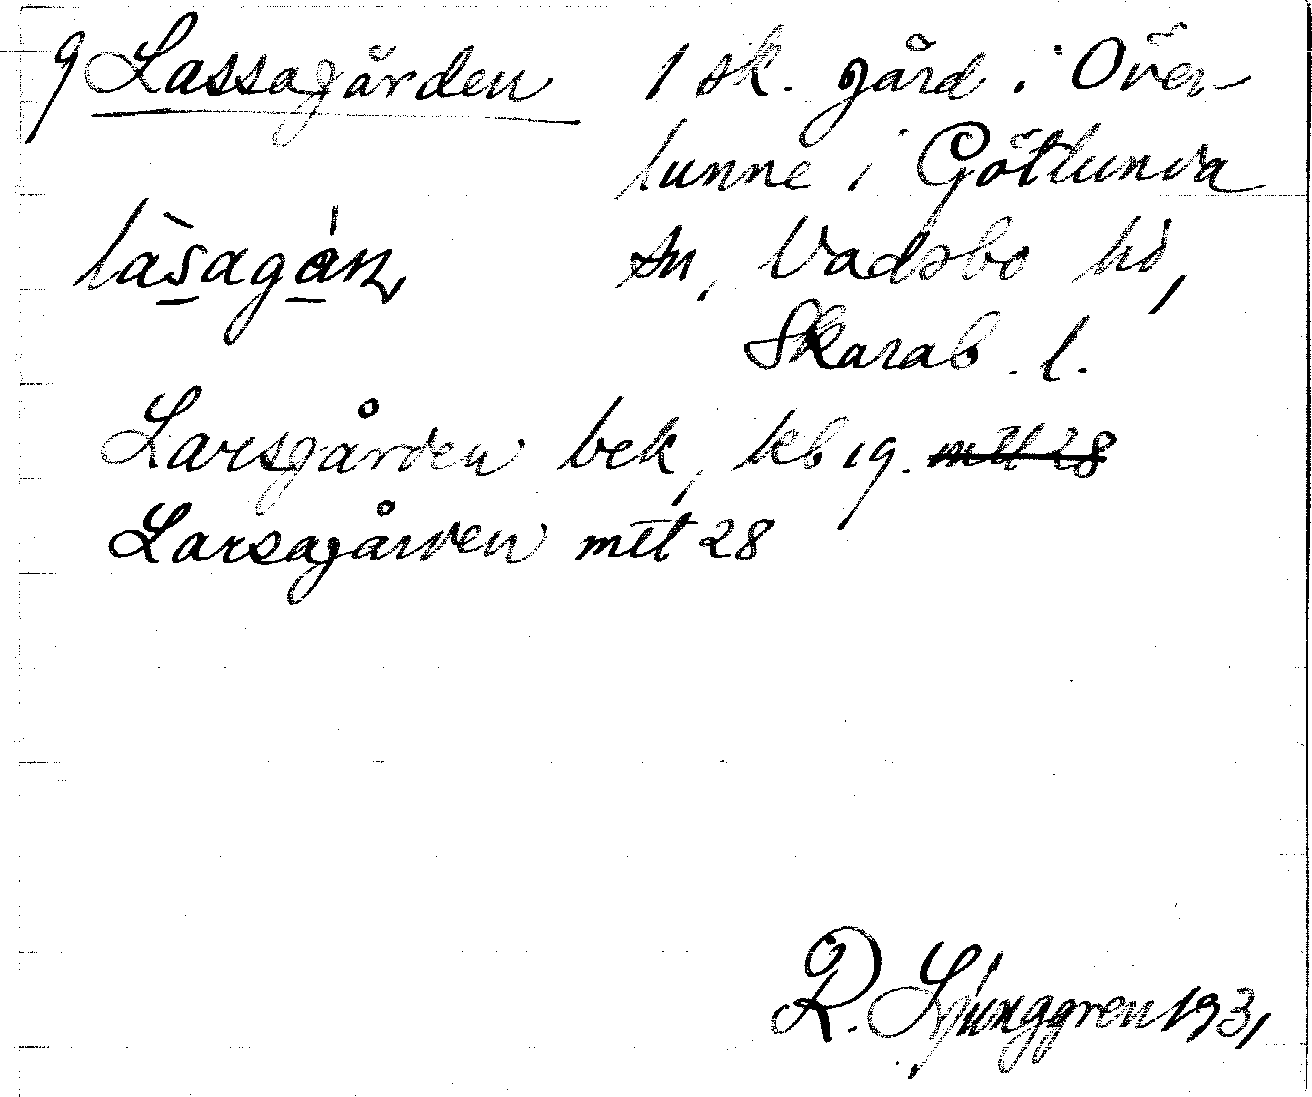 g Lassagården 1 sk. gård i Över-
lunne i Götlunda
làsagán, sn, Vadsbo hd,
Skarab. l.
Larsgården bek, kb 19. mtl 28
Larsagården mtl 28
R. Ljunggren 1931